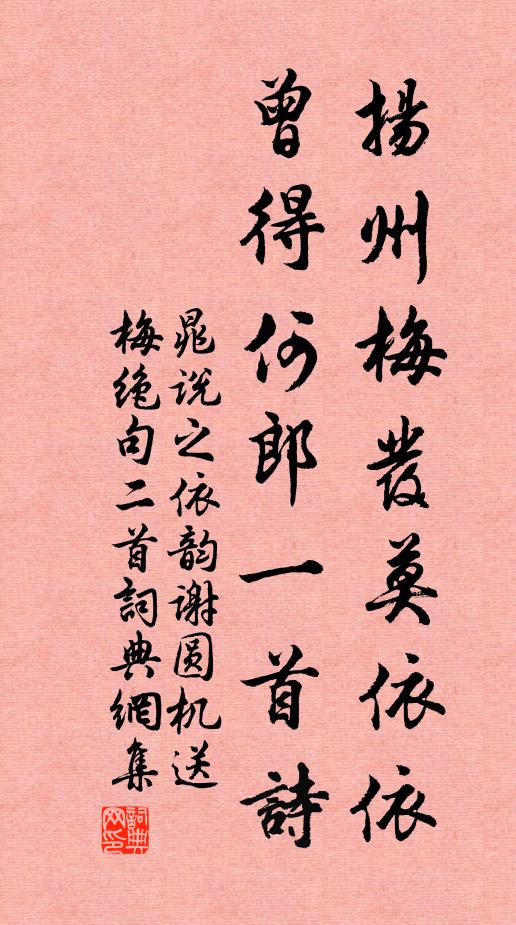 揚州梅發莫依依
曾得何郎一首詩
晁説之依韵謝圆机送
梅绝句二首詞典網集
詞典网印